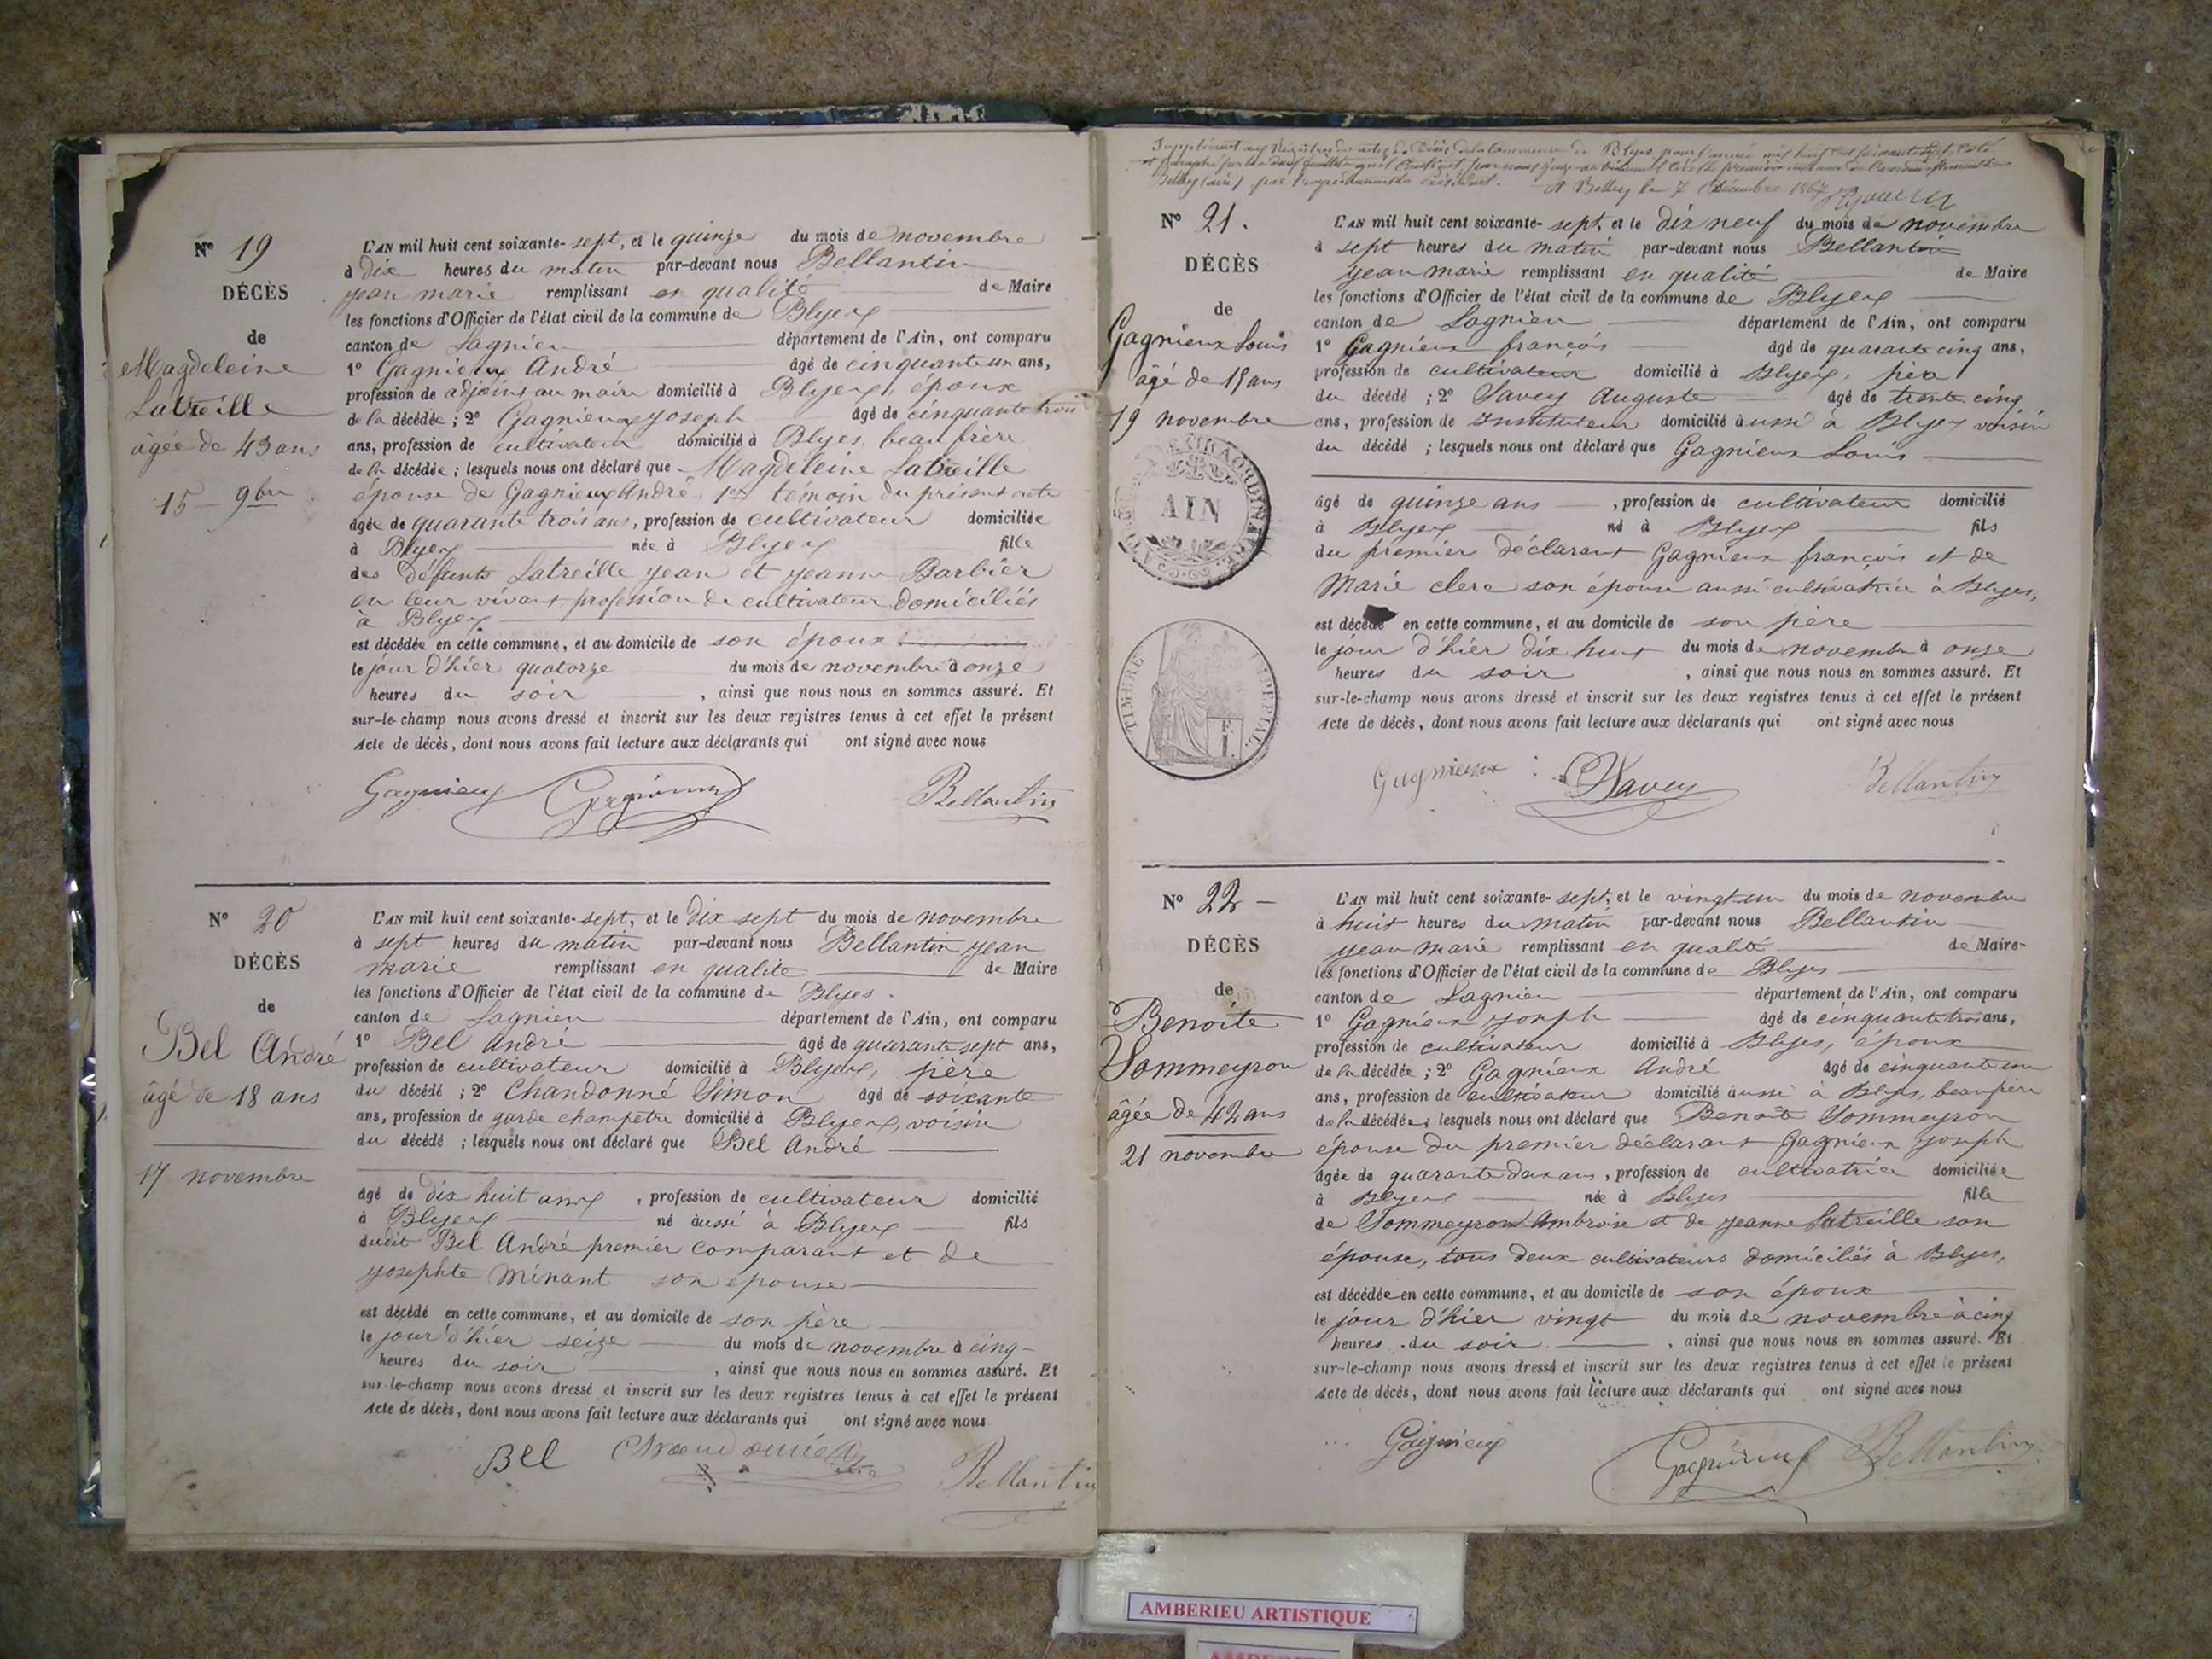 N° 19
DÉCÈS
de
Magdeleine
Latreille
âgée de 43 ans
15 - 9bre
L'AN mil huit cent soixante-sept, et le quinze du mois de novembre
à dix heures du matin par-devant nous Bellantin
jean marie remplissant en qualité de Maire
les fonctions d'Officier de l'état civil de la commune de Blyes
canton de Lagnieu département de l'Ain, ont comparu
1° Gagnieux André âgé de cinquante un ans,
profession de adjoint au maire domicilié à Blyes, époux
de la décédée ; 2° Gagnieux joseph âgé de cinquante trois
ans, profession de cultivateur domicilié à Blyes, beau frère
de la décédée ; lesquels nous ont déclaré que Magdeleine Latreille
épouse de Gagnieux André 1er témoin du présent acte
âgée de quarante trois ans, profession de cultivateur domiciliée
à Blyes née à Blyes fille
des défunts Latreille jean et jeanne Barbier
en leur vivant profession de cultivateur domiciliés
à Blyes
est décédée en cette commune, et au domicile de son époux
le jour d'hier quatorze du mois de novembre à onze
heures du soir , ainsi que nous nous en sommes assuré. Et
sur-le-champ nous avons dressé et inscrit sur les deux registres tenus à cet effet le présent
Acte de décès, dont nous avons fait lecture aux déclarants qui ont signé avec nous
Gagnieux Gagnieux Bellantin
N° 20
DÉCÈS
de
Bel André
âgé de 18 ans
17 novembre
L'AN mil huit cent soixante-sept, et le dix sept du mois de novembre
à sept heures du matin par-devant nous Bellantin jean
marie remplissant en qualité de Maire
les fonctions d'Officier de l'état civil de la commune de Blyes.
canton de Lagnieu département de l'Ain, ont comparu
1° Bel André âgé de quarante sept ans,
profession de cultivateur domicilié à Blyes, père
du décédé ; 2° Chandonné Simon âgé de soixante
ans, profession de garde champêtre domicilié à Blyes, voisin
du décédé ; lesquels nous ont déclaré que Bel André
âgé de dix huit ans , profession de cultivateur domicilié
à Blyes né aussi à Blyes fils
dudit Bel André premier comparant et de
josephte Minant son épouse
est décédé en cette commune, et au domicile de son père
le jour d'hier seize du mois de novembre à cinq
heures du soir , ainsi que nous nous en sommes assuré. Et
sur-le-champ nous avons dressé et inscrit sur les deux registres tenus à cet effet le présent
Acte de décès, dont nous avons fait lecture aux déclarants qui ont signé avec nous
Bel Bellantin
Supplément aux Registres des actes de Décès de la commune de Blyes pour l'année mil huit cent soixante sept, coté
et paraphé
Belley (ain) A Belley le 7 Décembre 1867
N° 21.
DÉCÈS
de
Gagnieux Louis
âgé de 15 ans
19 novembre
AIN
TIMBRE IMPÉRIAL
L'AN mil huit cent soixante-sept, et le dix neuf du mois de novembre
à sept heures du matin par-devant nous Bellantin
jean marie remplissant en qualité de Maire
les fonctions d'Officier de l'état civil de la commune de Blyes
canton de Lagnieu département de l'Ain, ont comparu
1° Gagnieux françois âgé de quarante cinq ans,
profession de cultivateur domicilié à Blyes, père
du décédé ; 2° Savey Auguste âgé de trente cinq
ans, profession de Instituteur domicilié aussi à Blyes voisin
du décédé ; lesquels nous ont déclaré que Gagnieux Louis
âgé de quinze ans , profession de cultivateur domicilié
à Blyes né à Blyes fils
du premier déclarant Gagnieux françois et de
Marie clerc son épouse aussi cultivatrice à Blyes,
est décédé en cette commune, et au domicile de son père
le jour d'hier dix huit du mois de novembre à onze
heures du soir , ainsi que nous nous en sommes assuré. Et
sur-le-champ nous avons dressé et inscrit sur les deux registres tenus à cet effet le présent
Acte de décès, dont nous avons fait lecture aux déclarants qui ont signé avec nous
Gagnieux Savey Bellantin
N° 22
DÉCÈS
de
Benoite
Sommeyron
âgée de 42 ans
21 novembre
L'AN mil huit cent soixante-sept, et le vingt un du mois de novembre
à huit heures du matin par-devant nous Bellantin
jean marie remplissant en qualité de Maire
les fonctions d'Officier de l'état civil de la commune de Blyes
canton de Lagnieu département de l'Ain, ont comparu
1° Gagnieux joseph âgé de cinquante trois ans,
profession de cultivateur domicilié à Blyes, époux
de la décédée ; 2° Gagnieux André âgé de cinquante un
ans, profession de cultivateur domicilié aussi à Blyes, beau frère
de la décédée ; lesquels nous ont déclaré que Benoite Sommeyron
épouse du premier déclarant Gagnieux joseph
âgée de quarante deux ans , profession de cultivatrice domiciliée
à Blyes née à Blyes fille
de Sommeyron Ambroise et de jeanne Latreille son
épouse, tous deux cultivateurs domiciliés à Blyes,
est décédée en cette commune, et au domicile de son époux
le jour d'hier vingt du mois de novembre à cinq
heures du soir , ainsi que nous nous en sommes assuré. Et
sur-le-champ nous avons dressé et inscrit sur les deux registres tenus à cet effet le présent
Acte de décès, dont nous avons fait lecture aux déclarants qui ont signé avec nous
Gagnieux Gagnieux Bellantin
AMBERIEU ARTISTIQUE